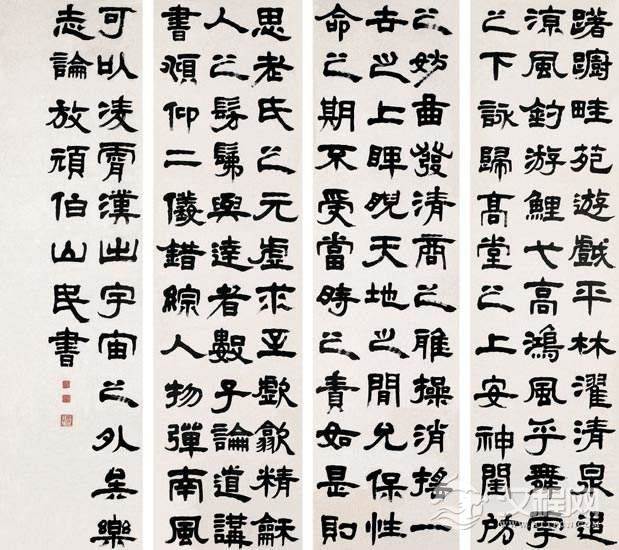 躇躕畦苑遊戲平林濯清泉追
涼風釣游鯉弋高鴻風乎舞雩
之下詠歸高堂之上安神閨房
之妙曲發清商之雅操消搖一
世之上睥睨天地之間永保性
命之期不受當時之責如是則
思老氏之元虛求至歔歙精龢
人之髣髴與達者數子論道講
書頫仰二儀錯綜人物彈南風
可以淩霄漢出宇宙之外矣樂
志論放頑伯山民書